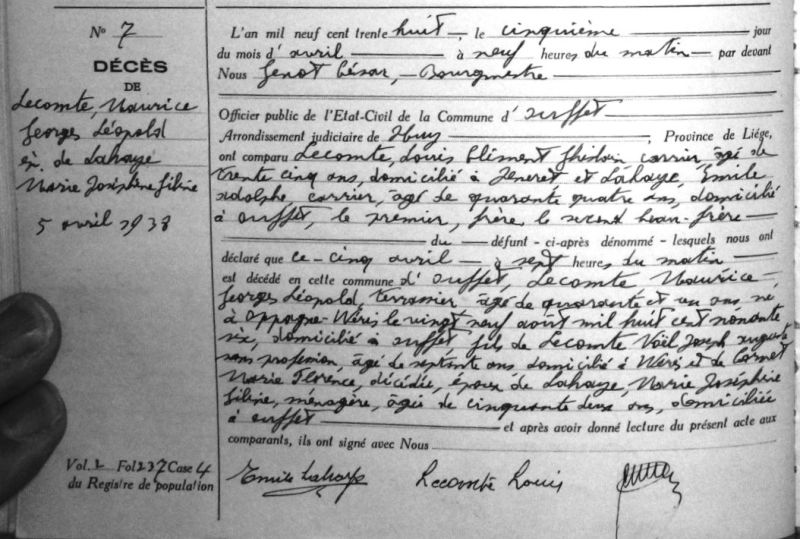 N° 7
DÉCÈS
DE
Lecomte, Maurice
Georges Léopold
ép. de Lahaye
Marie Joséphine Filine
5 avril 1938
L'an mil neuf cent trente huit, le cinquième jour
du mois d'avril à neuf heures du matin par devant
Nous Genot César, Bourgmestre
Officier public de l'Etat-Civil de la Commune d'Ouffet
Arrondissement judiciaire de Huy, Province de Liége,
ont comparu Lecomte, Louis Clément Ghislain carrier, âgé de
trente cinq ans, domicilié à Jeneret et Lahaye, Emile
Adolphe, carrier, âgé de quarante quatre ans, domicilié
à Ouffet, le premier, frère le second beau-frère
du défunt - ci-après dénommé - lesquels nous ont
déclaré que ce cinq avril à sept heures du matin
est décédé en cette commune d'Ouffet, Lecomte Maurice
Georges Léopold, terrassier, âgé de quarante et un ans né
à Oppagne-Wéris le vingt neuf août mil huit cent nonante
six, domicilié à Ouffet, fils de Lecomte Noël Joseph August
sans profession, âgé de septante ans, domicilié à Wéris et de Cornet
Marie Florence, décédée, époux de Lahaye, Marie Joséphine
Filine, ménagère, âgée de cinquante deux ans, domiciliée
à Ouffet et après avoir donné lecture du présent acte aux
comparants, ils ont signé avec Nous
Vol. 2 Fol 237 Case 4
du Registre de population
Emile Lahaye Lecomte Louis